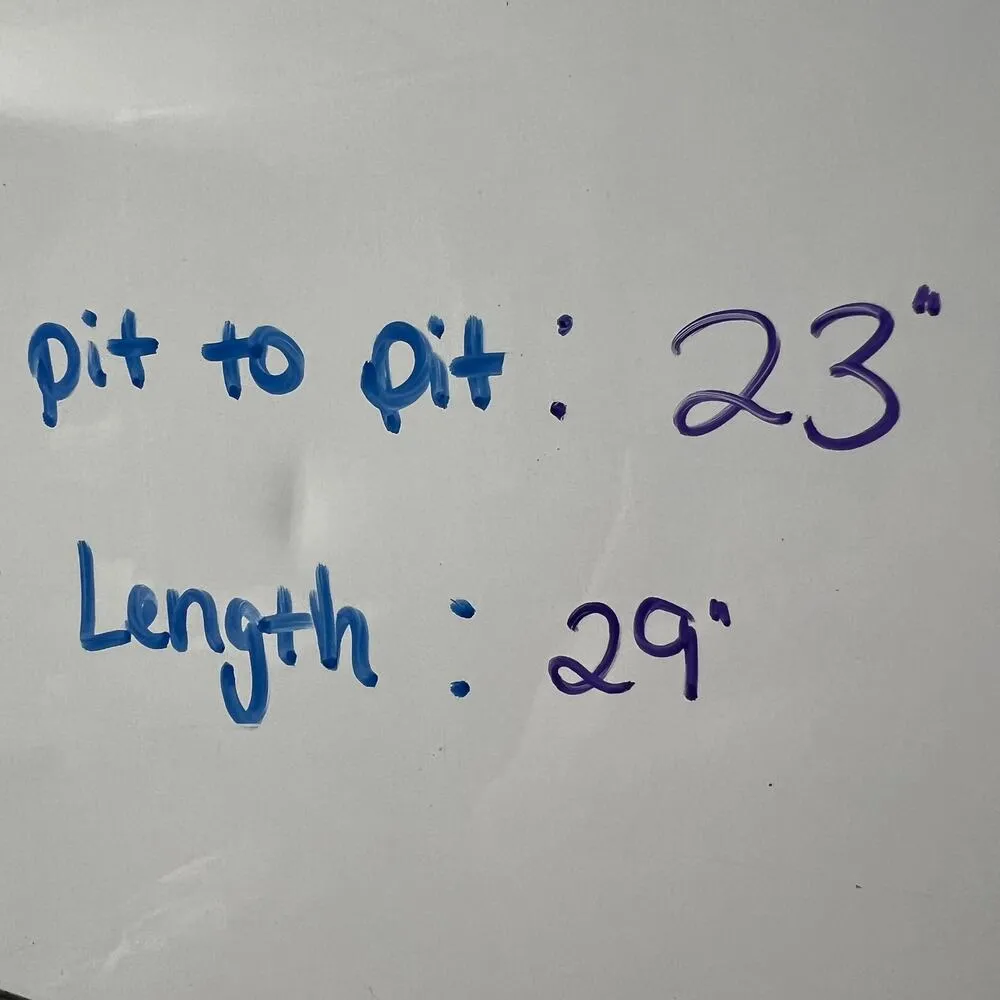 pit to pit : 23"
Length : 29"